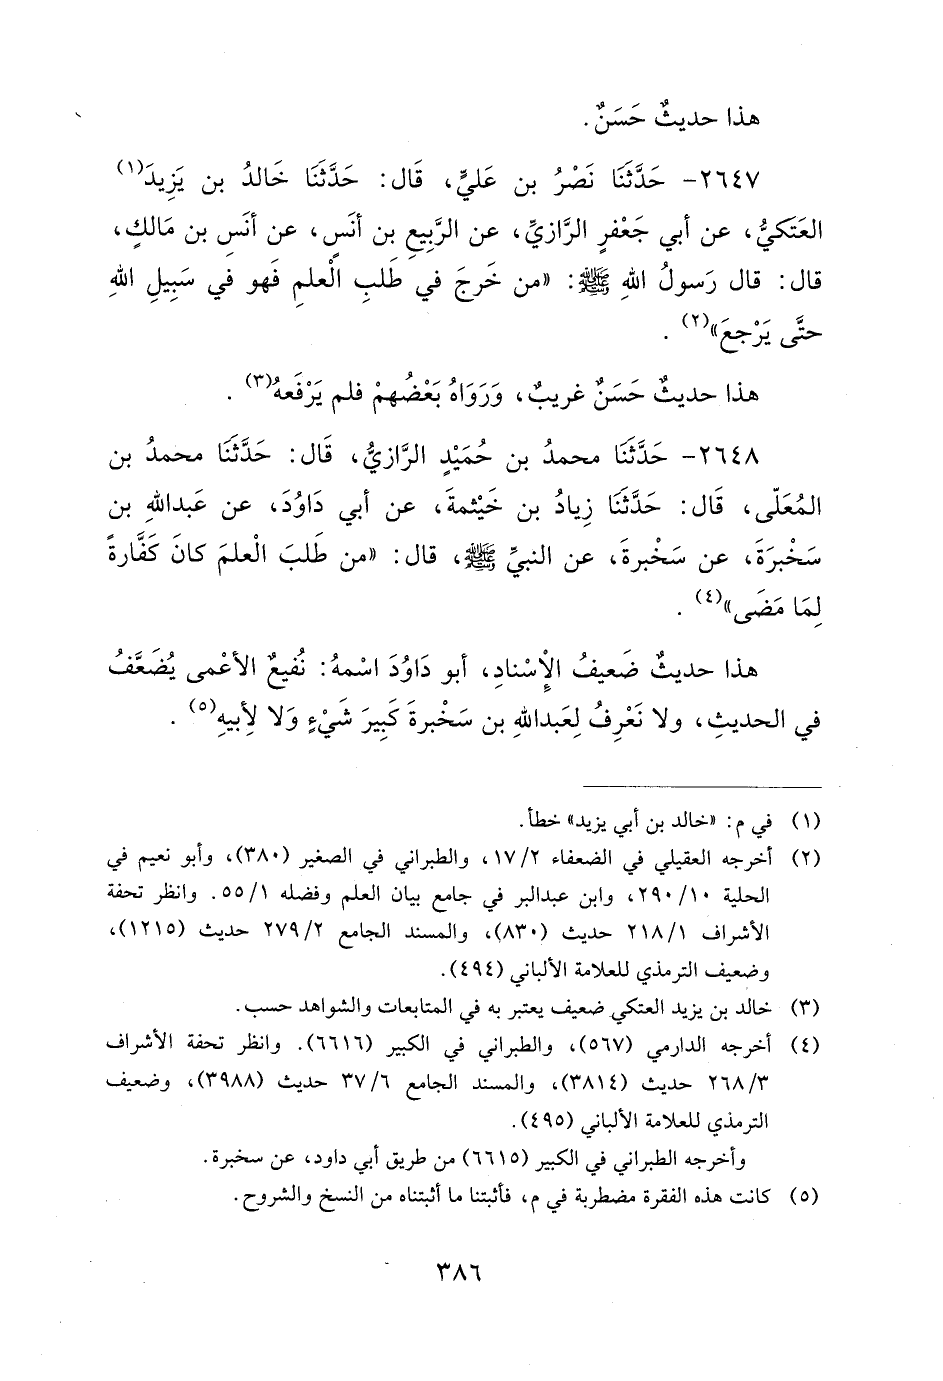 هذا حديثٌ حَسَنٌ.
٢٦٤٧- حَدَّثَنَا نَصْرُ بن عَليٍّ، قَال: حَدَّثَنَا خَالدُ بن يَزِيدَ(١)
العَتَكيُّ، عن أبي جَعْفرٍ الرَّازيِّ، عن الرَّبِيعِ بن أنَسٍ، عن أنَسِ بن مَالكٍ،
قال: قال رَسولُ اللهِ ﷺ: «من خَرجَ في طَلبِ الْعلمِ فَهو في سَبِيلِ اللهِ
حتَّى يَرْجعَ»(٢).
هذا حديثٌ حَسَنٌ غريبٌ، وَرَوَاهُ بَعْضُهمْ فلم يَرْفَعهُ(٣).
٢٦٤٨- حَدَّثَنَا محمدُ بن حُمَيْدٍ الرَّازيُّ، قَال: حَدَّثَنَا محمدُ بن
المُعَلّى، قَال: حَدَّثَنَا زِيادُ بن خَيْثمةَ، عن أبي دَاوُدَ، عن عَبداللهِ بن
سَخْبرَةَ، عن سَخْبرةَ، عن النبيِّ ﷺ، قال: «من طَلبَ الْعلمَ كانَ كَفَّارةً
لِمَا مَضَى»(٤).
هذا حديثٌ ضَعيفُ الإْسْنادِ، أبو دَاوُدَ اسْمهُ: نُفَيعٌ الأعْمى يُضَعَّفُ
في الحديثِ، ولا نَعْرِفُ لِعَبداللهِ بن سَخْبرةَ كَبِيرَ شَيْءٍ وَلا لأبِيهِ(٥).
(١) في م: «خالد بن أبي يزيد» خطأ.
(٢) أخرجه العقيلي في الضعفاء ٢/ ١٧، والطبراني في الصغير (٣٨٠)، وأبو نعيم في
الحلية ١٠/ ٢٩٠، وابن عبدالبر في جامع بيان العلم وفضله ١/ ٥٥. وانظر تحفة
الأشراف ١/ ٢١٨ حديث (٨٣٠)، والمسند الجامع ٢/ ٢٧٩ حديث (١٢١٥)،
وضعيف الترمذي للعلامة الألباني (٤٩٤).
(٣) خالد بن يزيد العتكي ضعيف يعتبر به في المتابعات والشواهد حسب.
(٤) أخرجه الدارمي (٥٦٧)، والطبراني في الكبير (٦٦١٦). وانظر تحفة الأشراف
٣/ ٢٦٨ حديث (٣٨١٤)، والمسند الجامع ٦/ ٣٧ حديث (٣٩٨٨)، وضعيف
الترمذي للعلامة الألباني (٤٩٥).
وأخرجه الطبراني في الكبير (٦٦١٥) من طريق أبي داود، عن سخبرة.
(٥) كانت هذه الفقرة مضطربة في م، فأثبتنا ما أثبتناه من النسخ والشروح.
٣٨٦